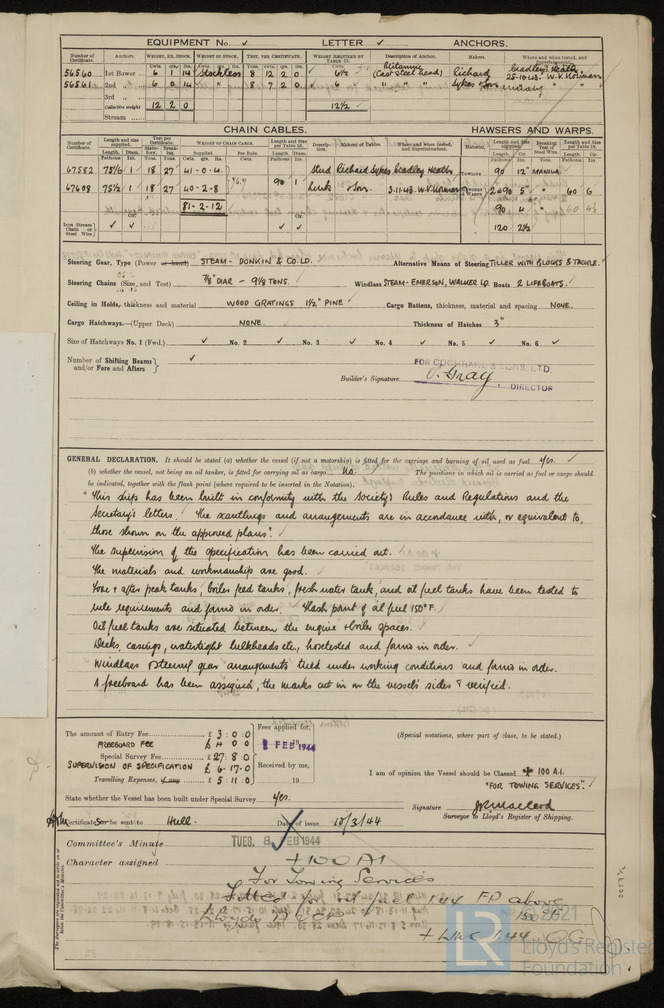 EQUIPMENT No. ✓ LETTER ✓ ANCHORS.
Number of Certificate. Anchors. WEIGHT, EX. STOCK. WEIGHT OF STOCK. TEST, PER CERTIFICATE. WEIGHT REQUIRED BY TABLE 53. Description of Anchor. Makers. Where and when tested, and Superintendent.
56560 1st Bower 6 1 14 Stockless 8 12 2 0 6½ (Cast steel head) Richard Cradley Heath
56561 2nd " 6 0 14 " 8 7 2 0 6 " " " Sykes & Son 25-10-43. W.V. Norman
3rd "
Collective weight 12 2 0 12½
Stream
CHAIN CABLES. HAWSERS AND WARPS.
67582 75½ 1 18 27 41-0-4. 90 1 Stud Richard Sykes Cradley Heath TOWLINE 90 12" MANILA
67608 75½ 1 18 27 40-2-8 Link & Son. 3-11-43. W.V. Norman 2@90 5 " 60 6
81-2-12 90 4 " 60 4½
Iron Stream Chain or Steel Wire 120 2½
Steering Gear, Type (Power or hand) STEAM - DONKIN & CO LD. Alternative Means of Steering TILLER WITH BLOCKS & TACKLE.
Steering Chains (Size, and Test) 7/8" DIAR - 9⅛ TONS. Windlass STEAM - EMERSON, WALKER LD. Boats 2 LIFEBOATS.
Ceiling in Holds, thickness and material WOOD GRATINGS 1½" PINE Cargo Battens, thickness, material and spacing NONE.
Cargo Hatchways.—(Upper Deck) NONE. Thickness of Hatches 3"
Size of Hatchways No. 1 (Fwd.) ✓ No. 2 ✓ No. 3 ✓ No. 4 ✓ No. 5 ✓ No. 6 ✓
Number of Shifting Beams and/or Fore and Afters ✓
FOR COCHRANE & SONS, LTD.
Builder's Signature O. Gray, DIRECTOR
GENERAL DECLARATION. It should be stated (a) whether the vessel (if not a motorship) is fitted for the carriage and burning of oil used as fuel yes.
(b) whether the vessel, not being an oil tanker, is fitted for carrying oil as cargo No. The positions in which oil is carried as fuel or cargo should
be indicated, together with the flash point (where required to be inserted in the Notation).
"This ship has been built in conformity with the Society's Rules and Regulations and the
Secretary's letters. The scantlings and arrangements are in accordance with, or equivalent to,
those shown on the approved plans".
The supervision of the specification has been carried out.
The materials and workmanship are good.
Fore & after peak tanks, boiler feed tanks, fresh water tank, and oil fuel tanks have been tested to
rule requirements and found in order. Flash point of oil fuel 150°F.
Oil fuel tanks are situated between the engine & boiler spaces.
Decks, casings, watertight bulkheads etc., hosetested and found in order.
Windlass & steering gear arrangements tried under working conditions and found in order.
A freeboard has been assigned, the marks cut in on the vessel's sides & verified.
The amount of Entry Fee £ 3 : 0 : 0 Fees applied for,
FREEBOARD FEE £ 4 0 0 1 FEB 1944
Special Survey Fee £ 27 : 8 : 0
SUPERVISION OF SPECIFICATION £ 6-17-0 Received by me,
Travelling Expenses, if any £ 5 : 11 : 0 19
(Special notations, where part of class, to be stated.)
I am of opinion the Vessel should be Classed ✠ 100 A.1.
"FOR TOWING SERVICES".
State whether the Vessel has been built under Special Survey yes.
Signature
Surveyor to Lloyd's Register of Shipping.
Certificate to be sent to Hull. Date of issue 10/3/44
Committee's Minute TUES. 8 FEB 1944
Character assigned +100 A1
For Towing Services
Fitted for oil fuel 1.44 FP above
150°F
+ LMC 1.44
LR 2021
Lloyd's Register
Foundation